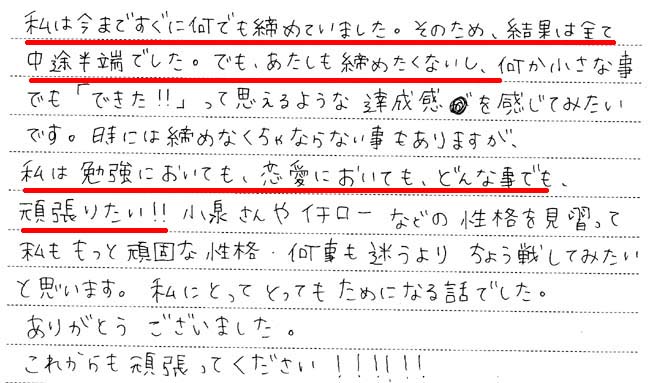 私は今まですぐに何でも締めていました。そのため、結果は全て
中途半端でした。でも、あたしも締めたくないし、何か小さな事
でも「できた!!」って思えるような達成感を感じてみたい
です。時には締めなくちゃならない事もありますが、
私は勉強においても、恋愛においても、どんな事でも、
頑張りたい!! 小泉さんやイチローなどの性格を見習って
私ももっと頑固な性格・何事も迷うよりちょう戦してみたい
と思います。私にとってとってもためになる話でした。
ありがとうございました。
これからも頑張ってください!!!!!!